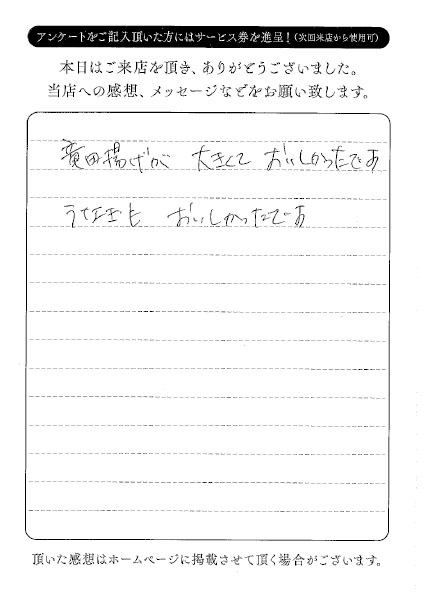 アンケートをご記入頂いた方にはサービス券を進呈！(次回来店から使用可)
本日はご来店を頂き、ありがとうございました。
当店への感想、メッセージなどをお願い致します。
竜田揚げが 大きくて おいしかったです
うなぎも おいしかったです
頂いた感想はホームページに掲載させて頂く場合がございます。